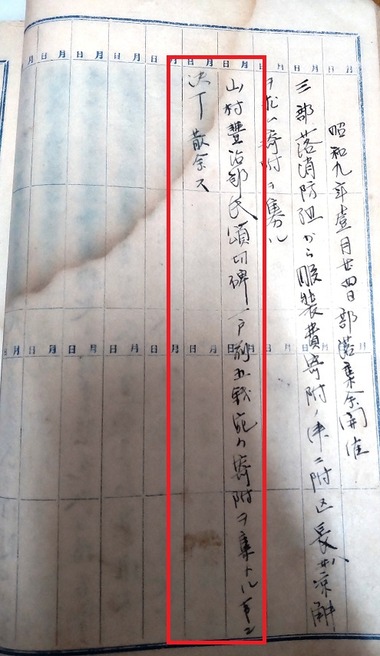 昭和九年壹月廿四日部落集会開催
三部落消防組から服装費寄附ノ件ニ附区長ガ涼解
ヲ 寄附ヲ集ル
山村豐治郎氏頌功碑一戸前五銭宛ノ寄附ヲ集トル事ニ
決丁散会ス
日 月 日 月 日 月 日 月 日 月 日 月 日 月 日 月
日 月 日 月 日 月 日 月 日 月 日 月 日 月 日 月